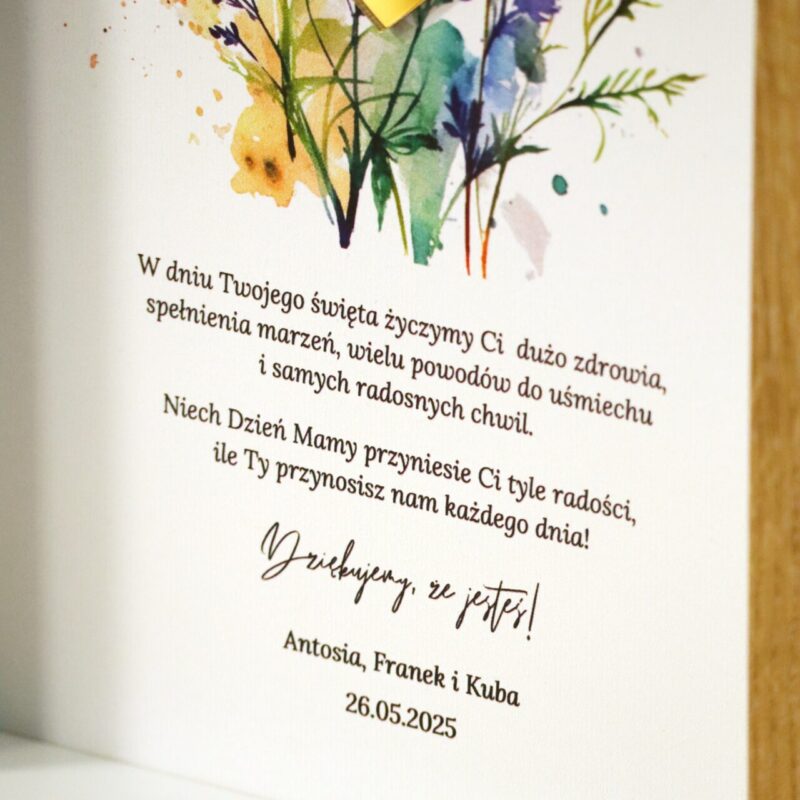 W dniu Twojego święta życzymy Ci dużo zdrowia,
spełnienia marzeń, wielu powodów do uśmiechu
i samych radosnych chwil.
Niech Dzień Mamy przyniesie Ci tyle radości,
ile Ty przynosisz nam każdego dnia!
Dziękujemy, że jesteś!
Antosia, Franek i Kuba
26.05.2025